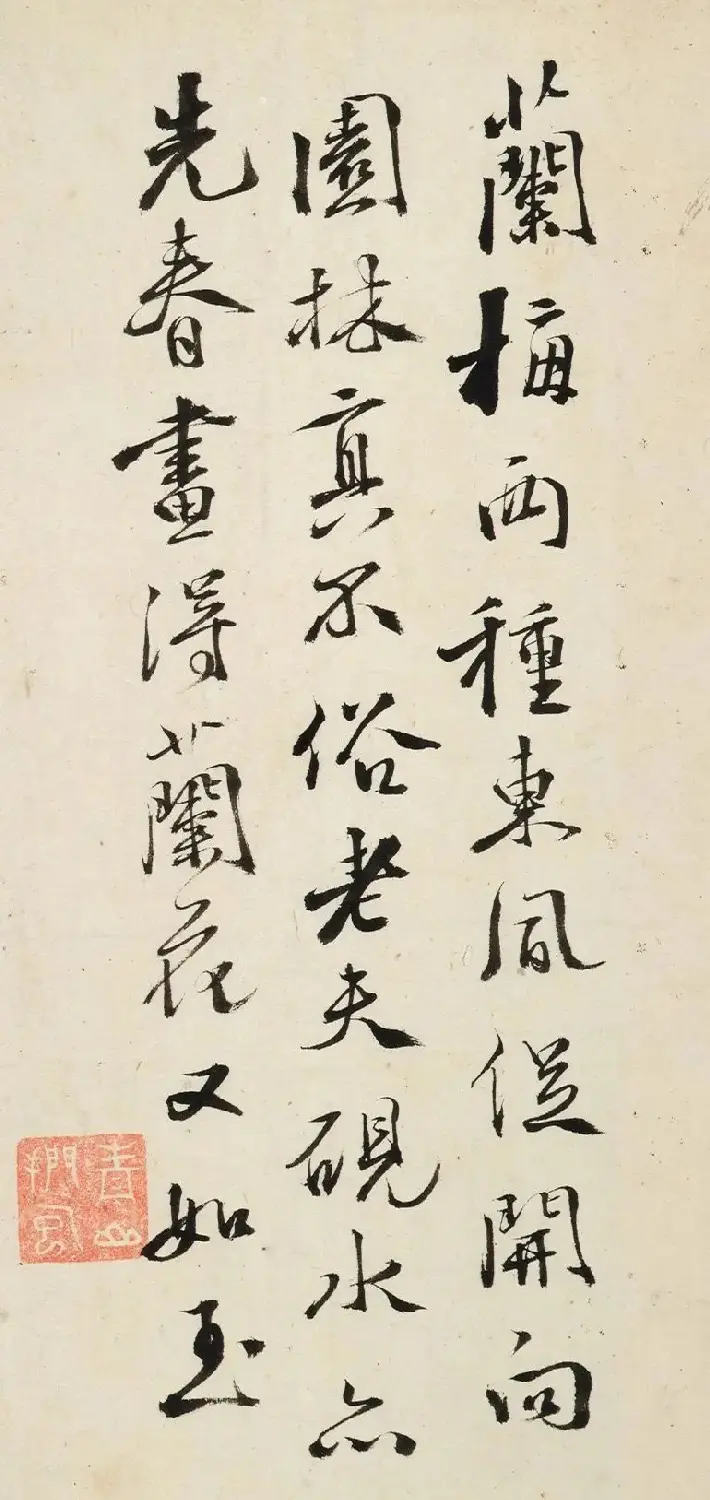 蘭梅兩種東風從開向
園林真不俗老夫硯水亦
先春畫得蘭花又如玉